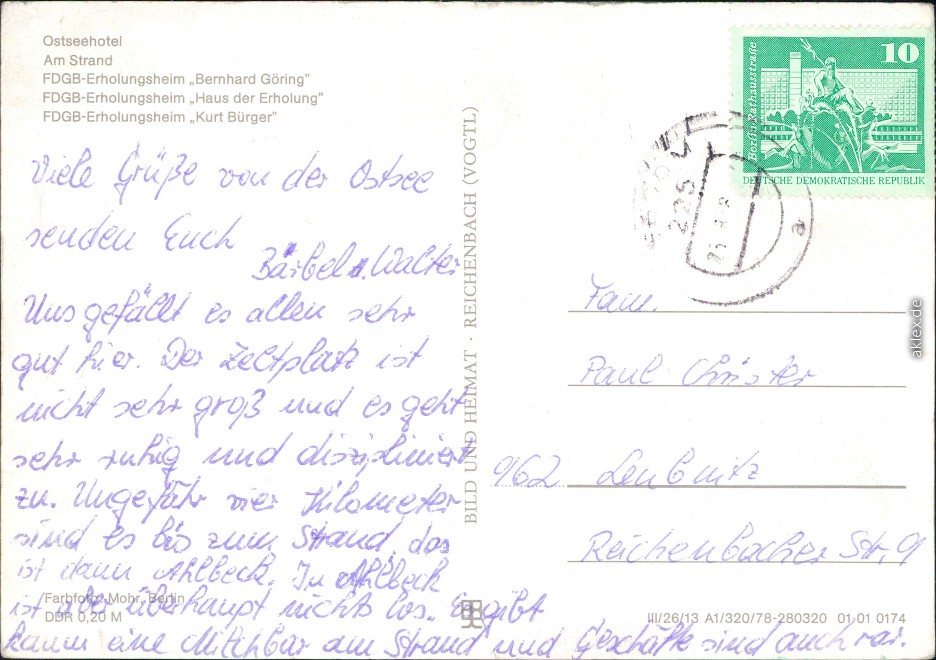 Ostseehotel
Am Strand
FDGB-Erholungsheim „Bernhard Göring”
FDGB-Erholungsheim „Haus der Erholung”
FDGB-Erholungsheim „Kurt Bürger”
Viele Grüße von der Ostsee
senden Euch
Bärbel u. Walter
Uns gefällt es allen sehr
gut hier. Der Zeltplatz ist
nicht sehr groß und es geht
sehr ruhig und diszipliniert
zu. Ungefähr vier Kilometer
sind es bis zum Strand, das
ist dann Ahlbeck. In Ahlbeck
ist aber überhaupt nichts los. Es gibt
kaum eine Milchbar am Strand und Geschäfte sind auch rar.
Farbfoto: Mohr, Berlin
DDR 0,20 M
BILD UND HEIMAT · REICHENBACH (VOGTL)
10
Berlin, Rathausstraße
DEUTSCHE DEMOKRATISCHE REPUBLIK
225
a
Fam.
Paul Christer
962 Leubnitz
Reichenbacher Str. 9
III/26/13 A1/320/78-280320 01 01 0174
aklex.de